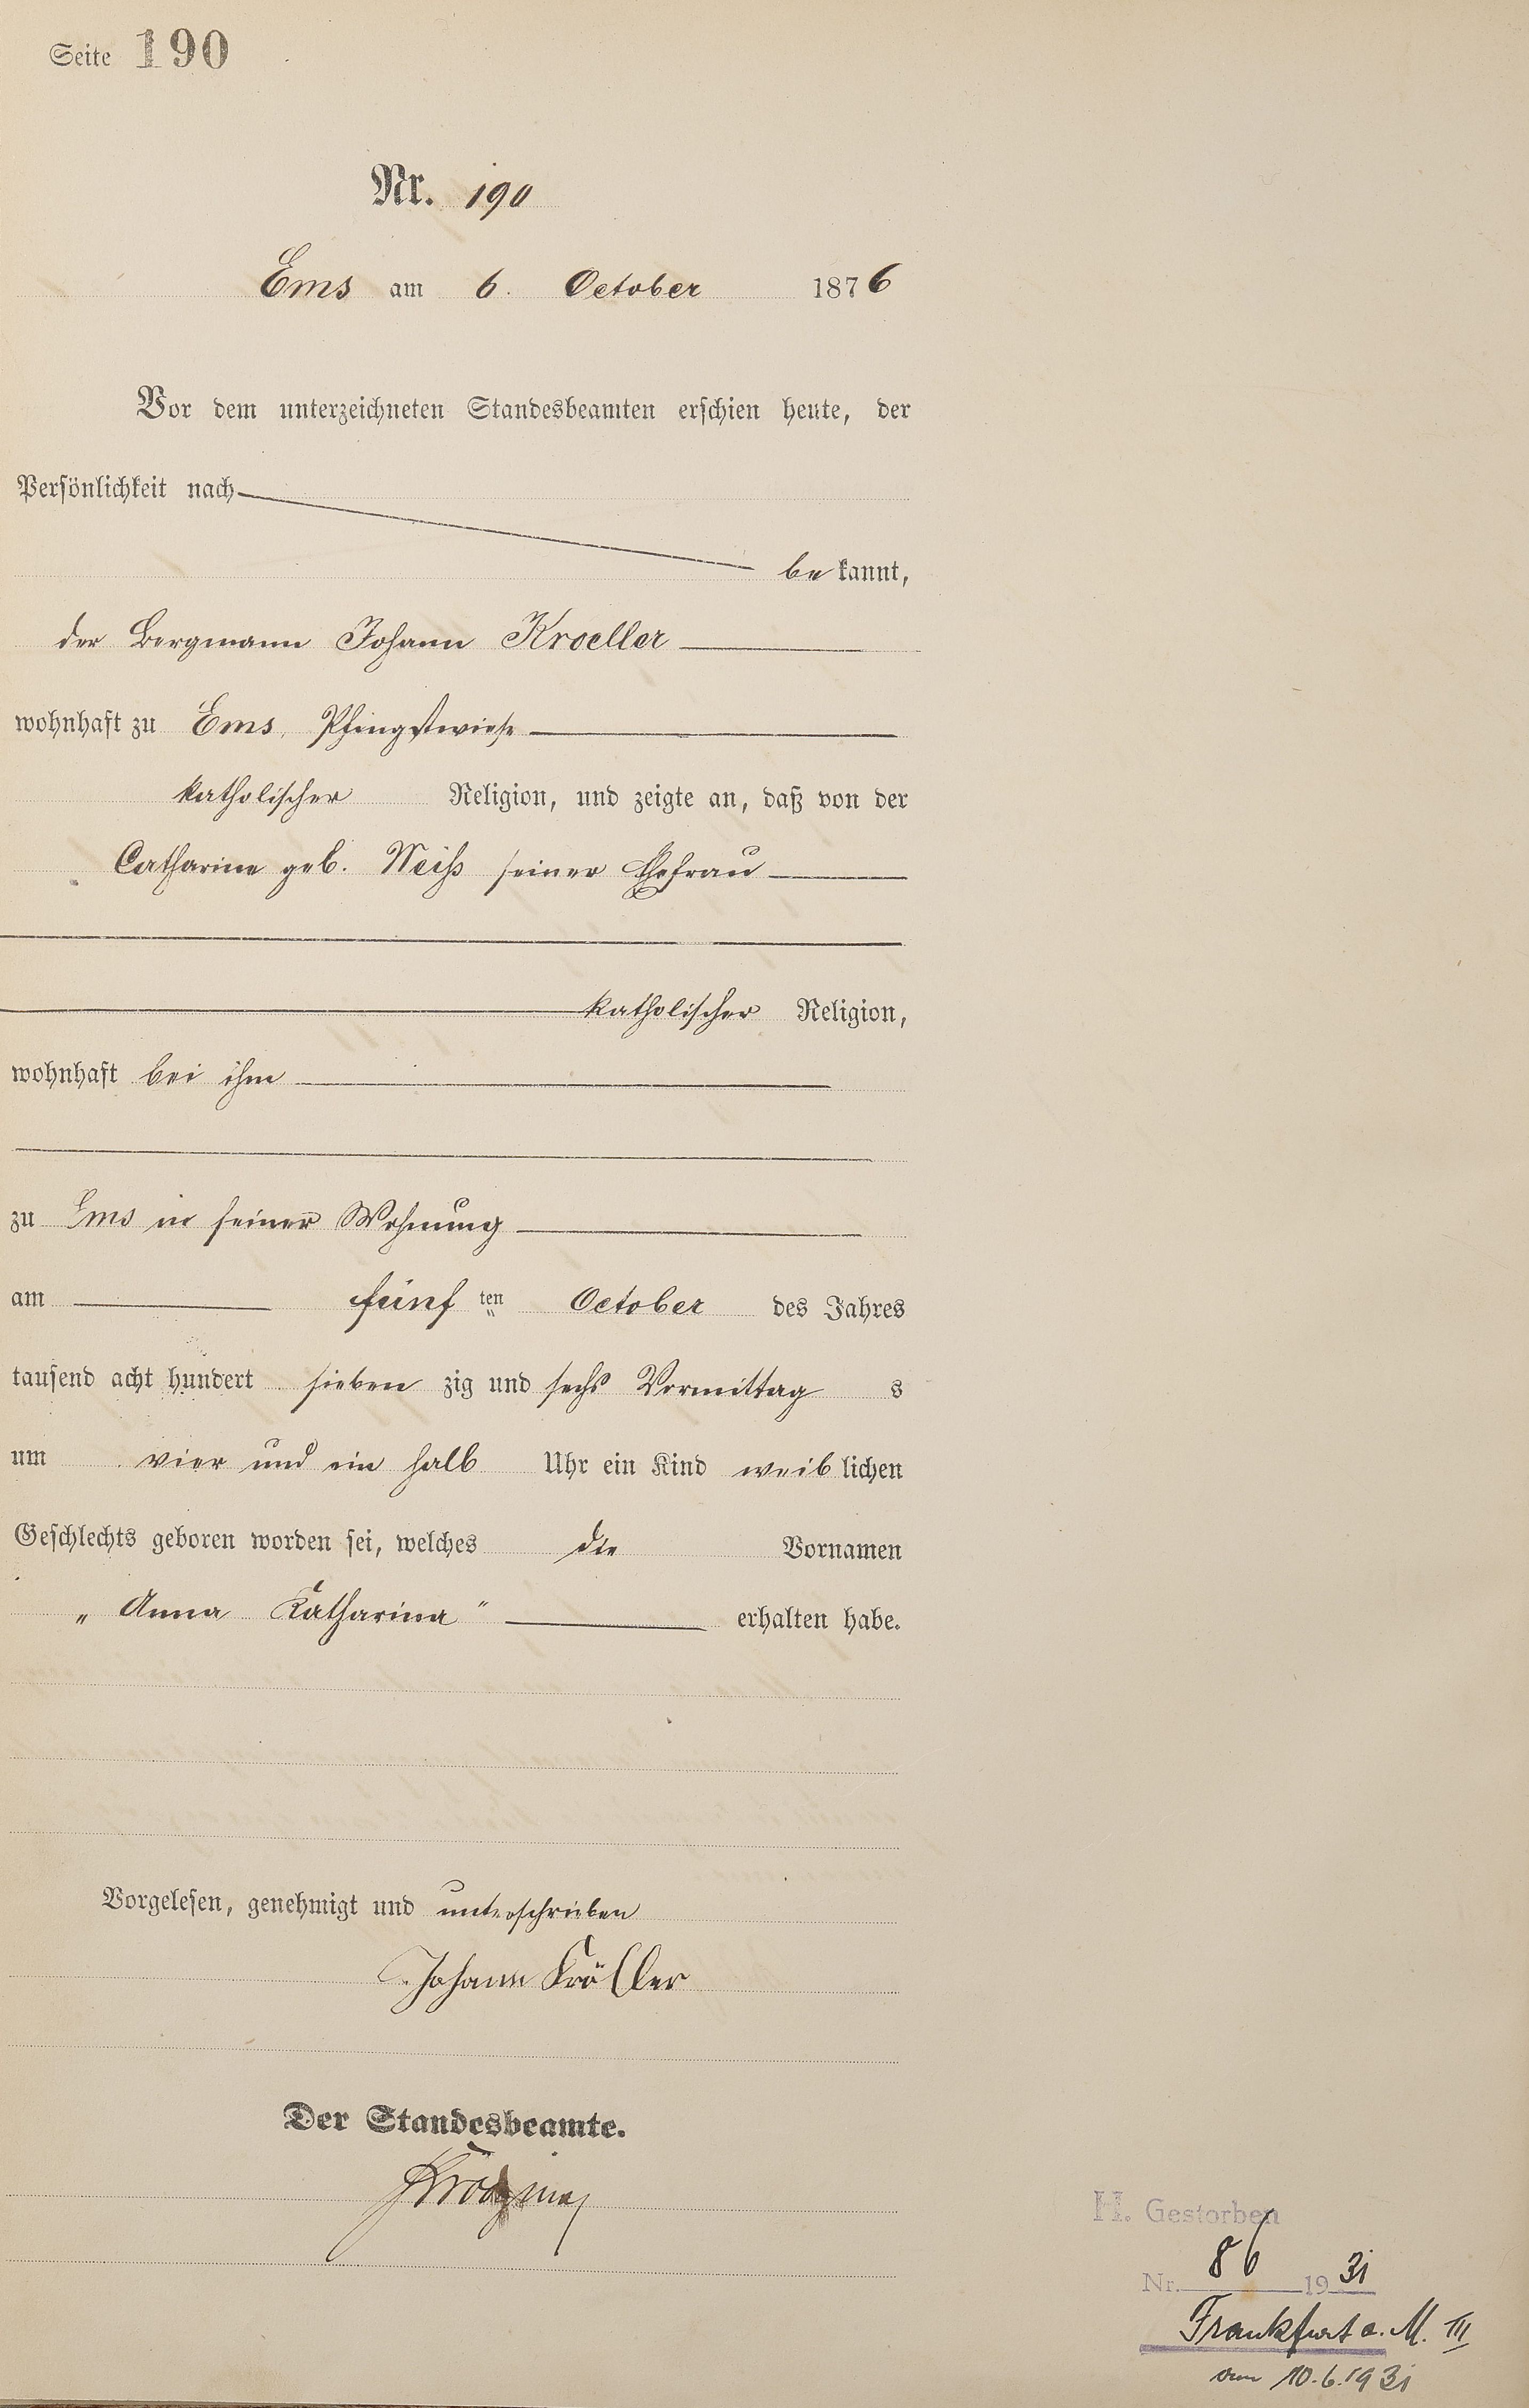 Seite 190
Nr. 190
Ems am 6. October 1876
Vor dem unterzeichneten Standesbeamten erschien heute, der
Persönlichkeit nach
bekannt,
der Bergmann Johann Kroeller
wohnhaft zu Ems, Pfingstwiese
katholischer Religion, und zeigte an, daß von der
Catharine geb. Weiß seiner Ehefrau
katholischer Religion,
wohnhaft bei ihm
zu Ems in seiner Wohnung
am fünf ten October des Jahres
tausend acht hundert sieben zig und sechs Vormittag s
um vier und ein halb Uhr ein Kind weiblichen
Geschlechts geboren worden sei, welches die Vornamen
„Anna Katharina" erhalten habe.
Vorgelesen, genehmigt und unterschrieben
Johann Kröller
Der Standesbeamte.
H. Gestorben
Nr. 86 1931
Frankfurt a. M. III
vom 10.6.1931